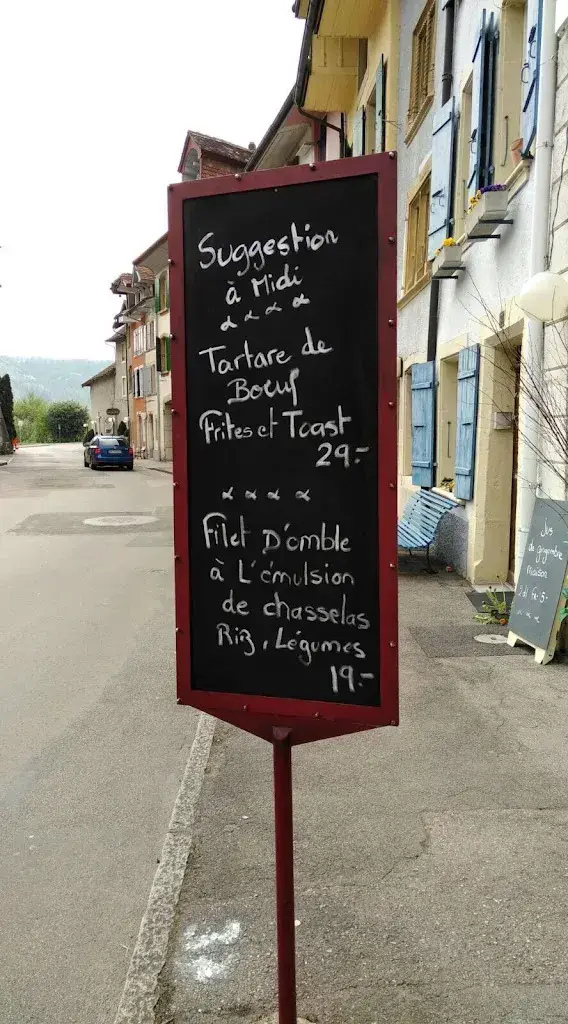 Suggestion
à Midi
Tartare de
Boeuf
Frites et Toast
29.-
Filet D'omble
à L'émulsion
de chasselas
Riz, Légumes
19.-
Jus
de gingembre
maison